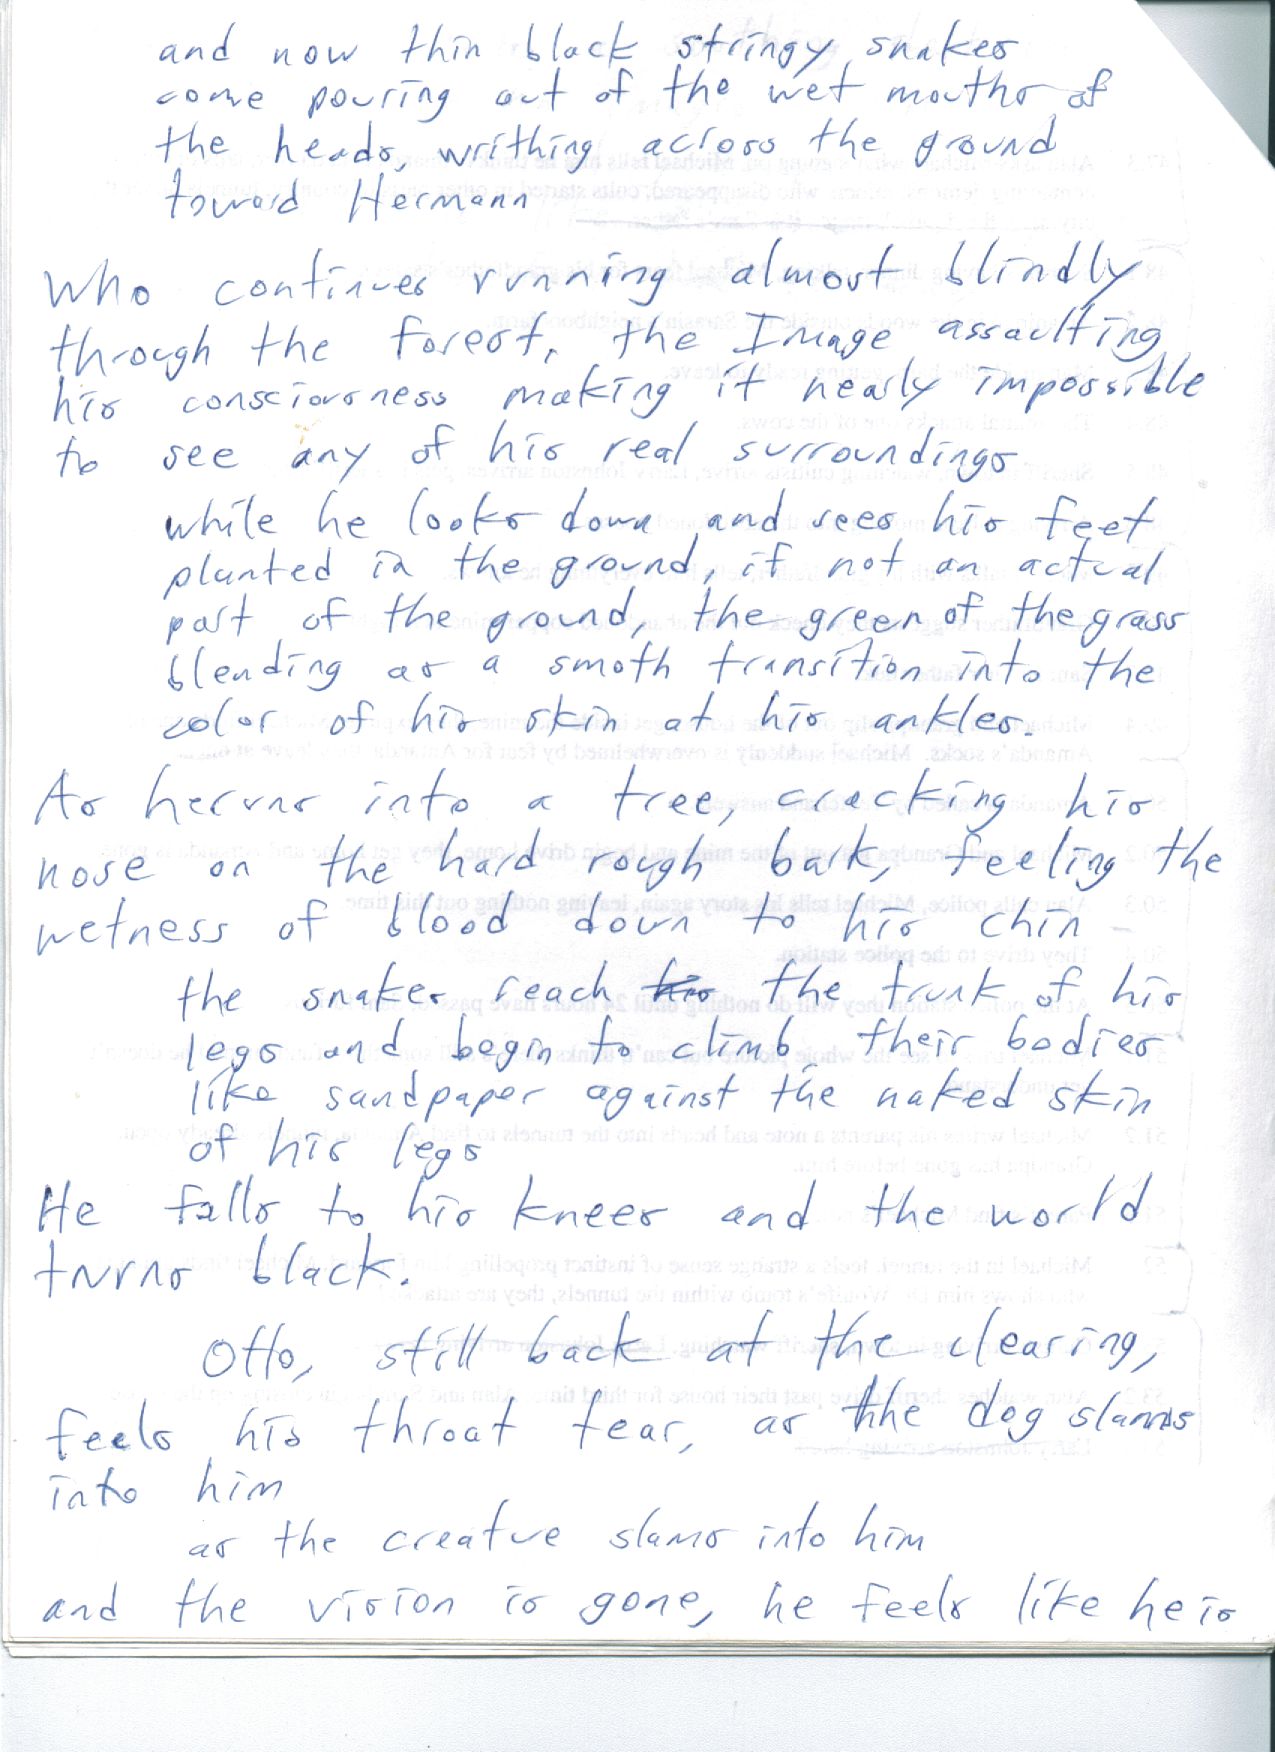 and now thin black stringy snakes
come pouring out of the wet mouths of
the heads, writhing across the ground
toward Hermann
Who continues running almost blindly
through the forest, the Image assaulting
his consciousness making it nearly impossible
to see any of his real surroundings
while he looks down and sees his feet
planted in the ground, if not an actual
part of the ground, the green of the grass
blending as a smoth transition into the
color of his skin at his ankles.
As he runs into a tree, cracking his
nose on the hard rough bark, feeling the
wetness of blood down to his chin
the snakes reach the trunk of his
legs and begin to climb, their bodies
like sandpaper against the naked skin
of his legs
He falls to his knees and the world
turns black.
Otto, still back at the clearing,
feels his throat tear, as the dog slams
into him
as the creature slams into him
and the vision is gone, he feels like he is